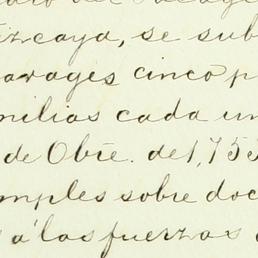 izcaya, se sub
arages cinco p
milias cada un
de Obre. de 1,753
mples sobre doc
á las fuerzas